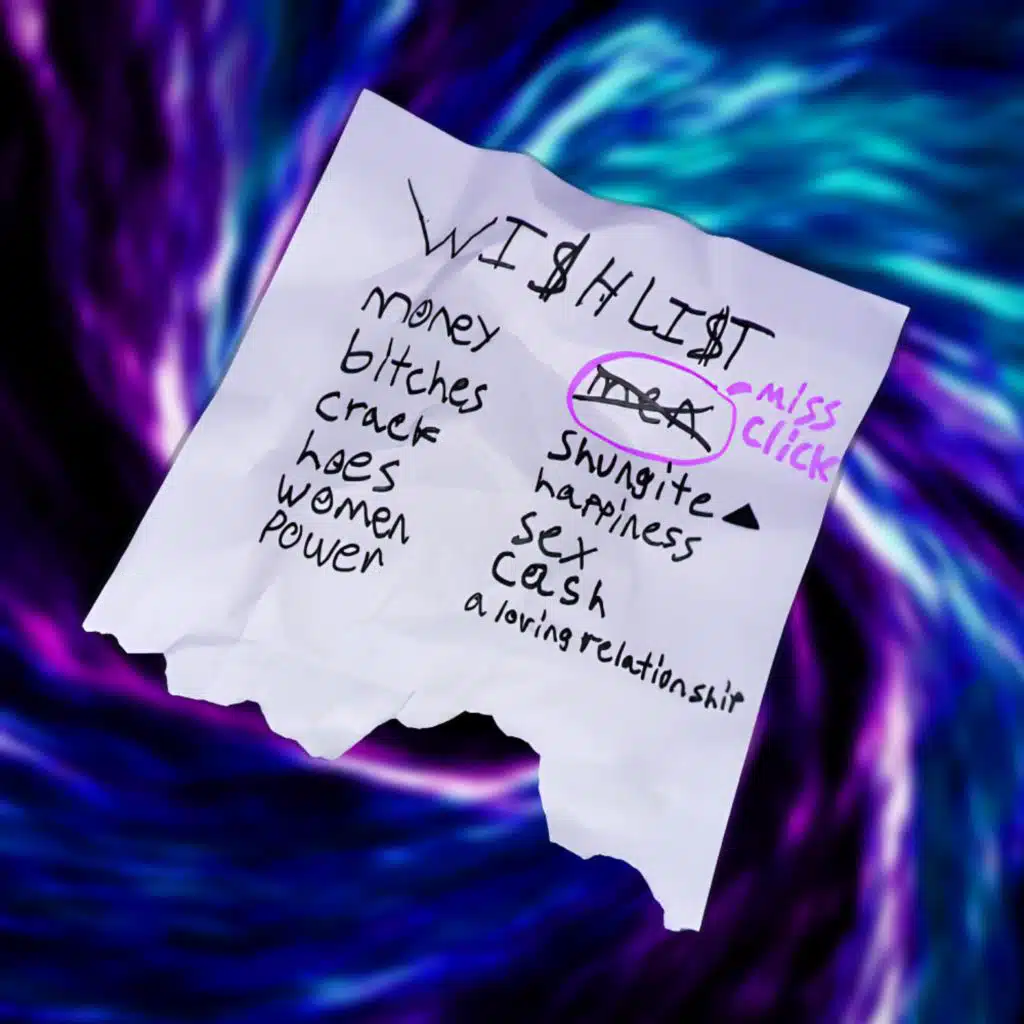 WI$HLI$T
money
bitches
crack
hoes
women
power
men
miss
click
Shungite
happiness
sex
Cash
a loving relationship